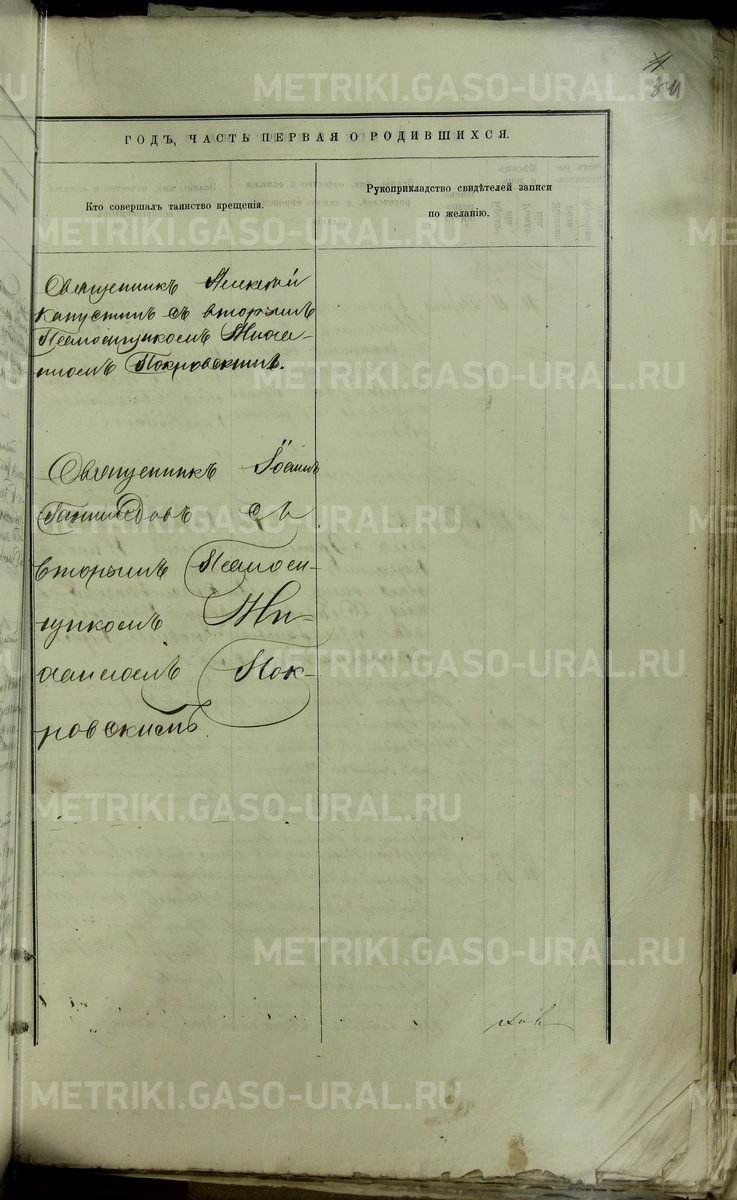 34
ГОДЪ, ЧАСТЬ ПЕРВАЯ О РОДИВШИХСЯ.
Кто совершалъ таинство крещенія.
Рукоприкладство свидѣтелей записи
по желанію.
Священникъ Алексѣй
Капустинъ съ вторымъ
Псаломщикомъ Миха-
иломъ Покровскимъ.
Священникъ Іоаннъ
съ
вторымъ Псаломщ-
икомъ Ми-
хаиломъ Пок-
ровскимъ.
METRIKI.GASO-URAL.RU